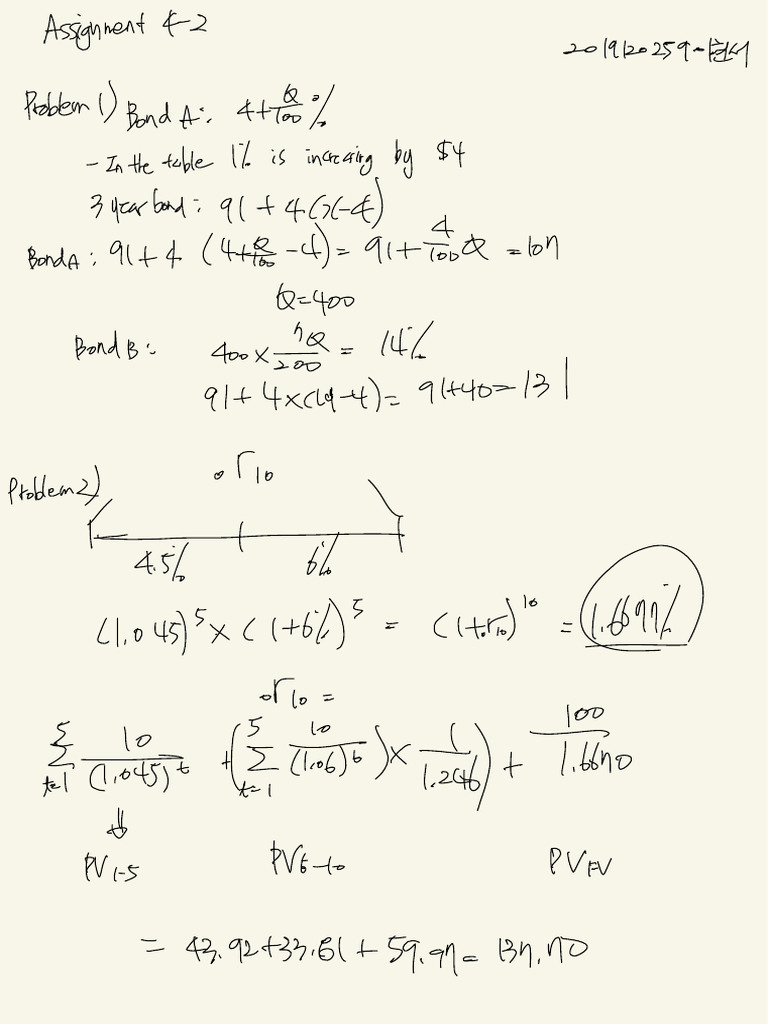 Assignment 4-2
201920259-현서
Problem 1) Bond A: 4+Q/100%
- In the table 1% is increasing by $4
3 year bond: 91 + 4(x-4)
Bond A: 91+4 (4+Q/100 -4) = 91+4/100 Q = 107
Q=400
Bond B: 400 × 7Q/200 = 14%
91+4×(14-4)= 91+40=131
Problem 2) 0r10
4.5% 6%
(1.045)^5 × (1+6%)^5 = (1+0r10)^10 = 1.6677%
0r10 =
5 Σ t=1 10/(1.045)^t + (5 Σ t=1 10/(1.06)^t) × 1/1.246) + 100/1.6670
⇓
PV1-5 PV6-10 PVFV
= 43.92+33.81+59.97= 137.70